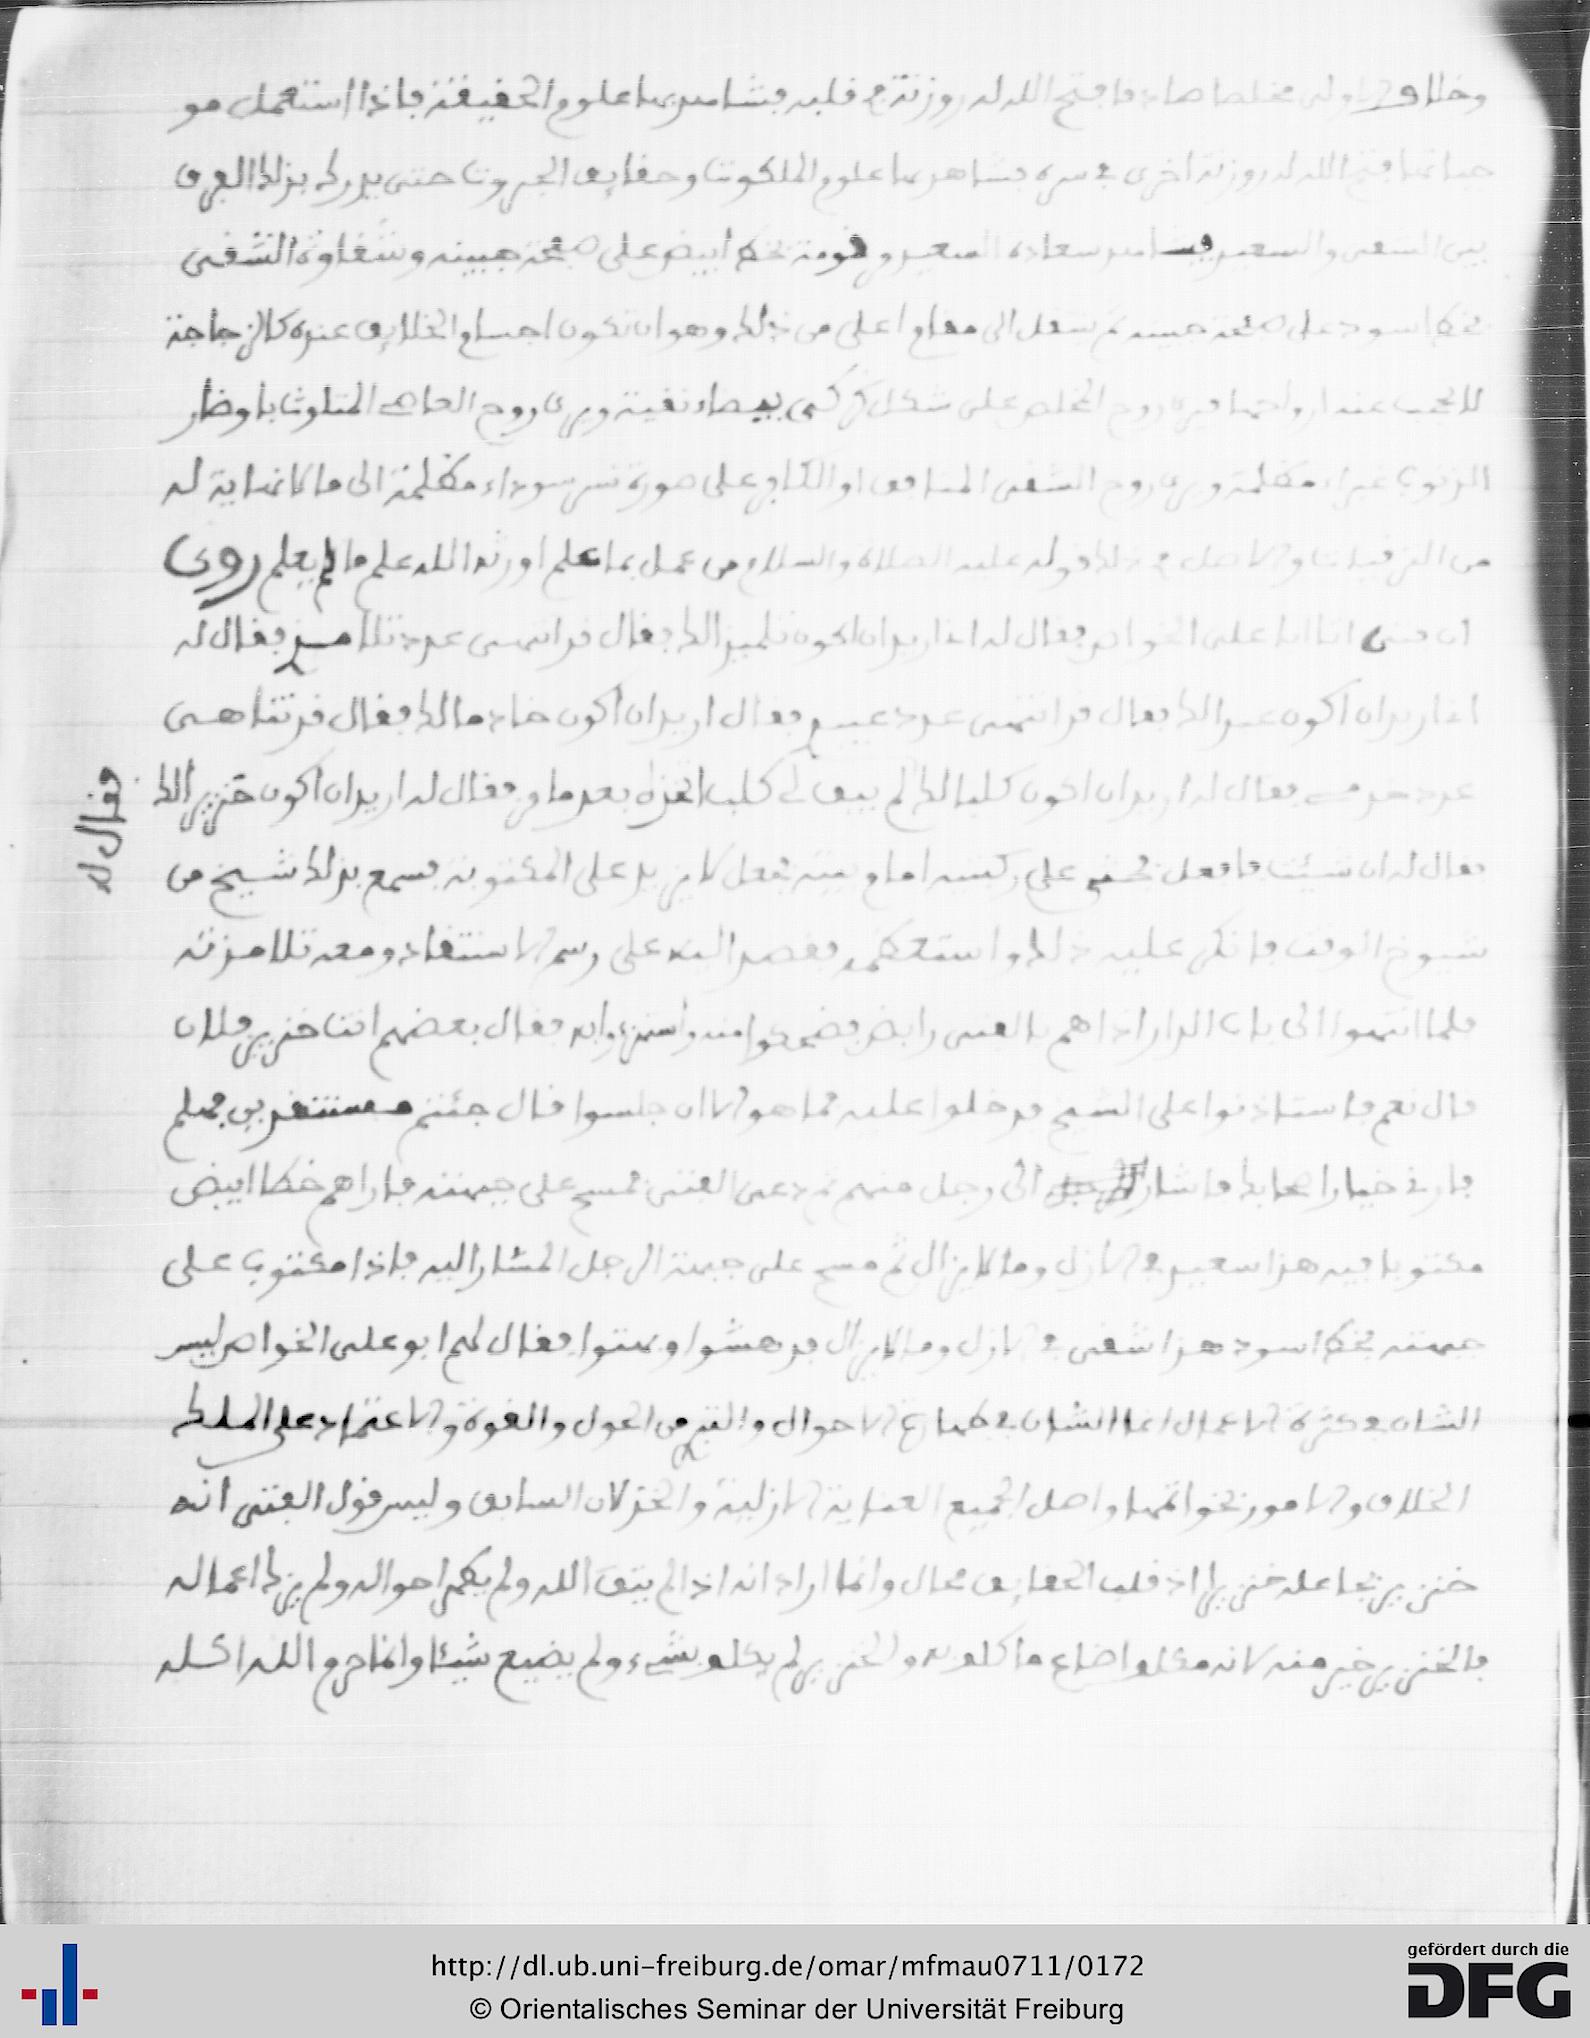 وخلاف الاولى مخلصا صادقا فتح الله له روزنة في قلبه يشاهد بها علوم الحقيقة فاذا استعمل هو
فتح الله له روزنة اخرى في سره يشاهد بها علوم الملكوت وحقايق الجبروت حتى يدرك بذلك الفرق
بين الشقي والسعيد يشاهد سعادة السعيد بخط ابيض على صفحة جبينه وشقاوة الشقي
بخط اسود على صفحة جبينه ثم ينتقل الى مقام اعلى من ذلك وهو ان تكون اجسام الخلايق عنده كالزجاجة
لا تحجب عنه ارواحها فيرى روح المخلص على شكل بيضاء نقية ويرى روح العاصي المتلوث باوضار
الذنوب غبراء مظلمة ويرى روح الشقي المنافق او الكافر على صورة سوداء مظلمة الى ما لا نهاية له
من الترقيات والاصل في ذلك قوله عليه الصلاة والسلام من عمل بما علم اورثه الله علم ما لم يعلم روي
ان فتى اتى ابا علي الخواص فقال له اني اريد ان اكون تلميذا لك فقال قد انتهى عدد تلاميذي فقال له
اني اريد ان اكون عبدا لك فقال قد انتهى عدد عبيدي فقال اريد ان اكون خادما لك فقال قد تناهى
عدد خدمي فقال له اريد ان اكون كلبا لك لم يبق لي كلب بعد ما فقال له اريد ان اكون خنزيرا لك
فقال له
فقال له ان شئت فافعل على ركبتيه امام بيته يفعل لا يزيد على المكتوبة فسمع بذلك شيخ من
شيوخ الوقت فانكر عليه ذلك واستعظمه فقصد اليه على رسم الانتقاد ومعه تلامذته
فلما انتهوا الى باب الدار اذا هم بالفتى رابض فضحكوا منه واستهزءوا به فقال بعضهم انت خنزير فلان
قال نعم فاستاذنوا على الشيخ فدخلوا عليه فما هو الا ان جلسوا قال جئتم منتقدين فهلم
فارني خيار اصحابك فاشار الى رجل منهم ثم دعى الفتى فمسح على جبهته فاراهم خطا ابيض
مكتوبا فيه هذا سعيد في الازل وما لا يزال ثم مسح على جبهة الرجل المشار اليه فاذا مكتوب على
جبهته بخط اسود هذا شقي في الازل وما لا يزال فدهشوا وبهتوا فقال لهم ابو علي الخواص ليس
الشان في كثرة الاعمال انما الشان في الاحوال والتبري من الحول والقوة والاعتماد على الملك
الخلاق والامور بخواتمها واصل الجميع العناية الازلية والخذلان السابق وليس قول الفتى انه
خنزير بجاعله خنزيرا اذ قلب الحقايق محال وانما اراد انه اذا لم يتق الله ولم يطهر احواله ولم يزك اعماله
فالخنزير خير منه لانه مكلف اضاع ما كلف به والخنزير لم يكلف بشيء ولم يضيع شيئا وانما حرم الله اكله
http://dl.ub.uni-freiburg.de/omar/mfmau0711/0172
© Orientalisches Seminar der Universität Freiburg
gefördert durch die
DFG